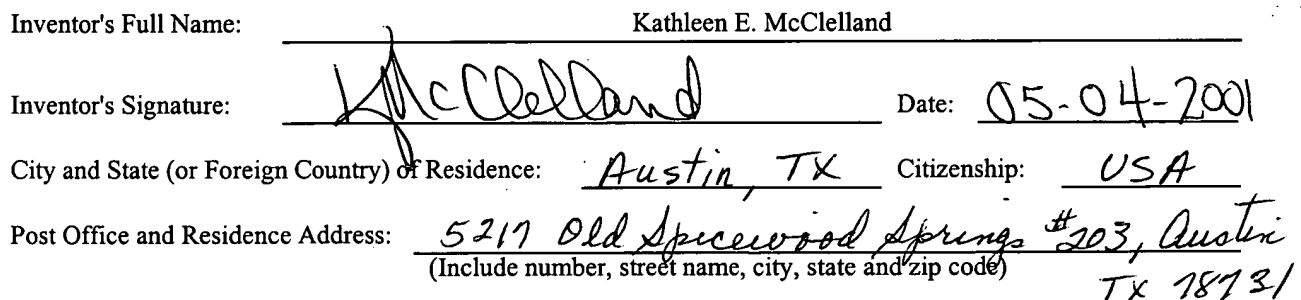 Inventor's Full Name: Kathleen E. McClelland
Inventor's Signature: KMcClelland Date: 05-04-2001
City and State (or Foreign Country) of Residence: Austin, TX Citizenship: USA
Post Office and Residence Address: 5217 Old Spicewood Springs #203, Austin
(Include number, street name, city, state and zip code)
TX 78731